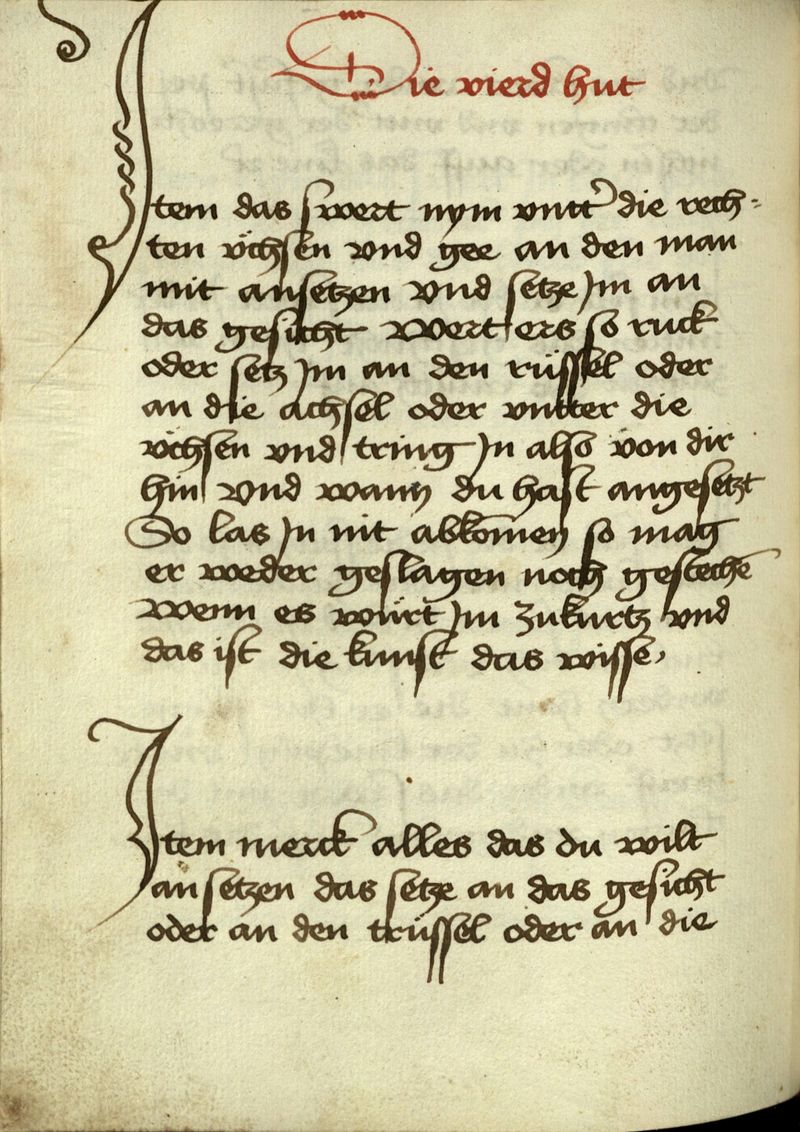 Die vierd hut
Item das swert nym vntter die rech=
ten v̈chsen vnd gee an den man
mit ansetzen vnd setze jm an
das gesicht wert ers so ruck
oder setz jm an den rüssel oder
an die achsel oder vntter die
v̈chsen vnd tring jn also von dir
hin vnd wann du hast angesetzt
So las jn nit abkomen so mag
er weder geslagen noch gestechē
wenn es würt jm zukurtz vnd
das ist die kunst das wisse,
Item merck alles das du wilt
an setzen das setze an das gesicht
oder an den trüssel oder an die